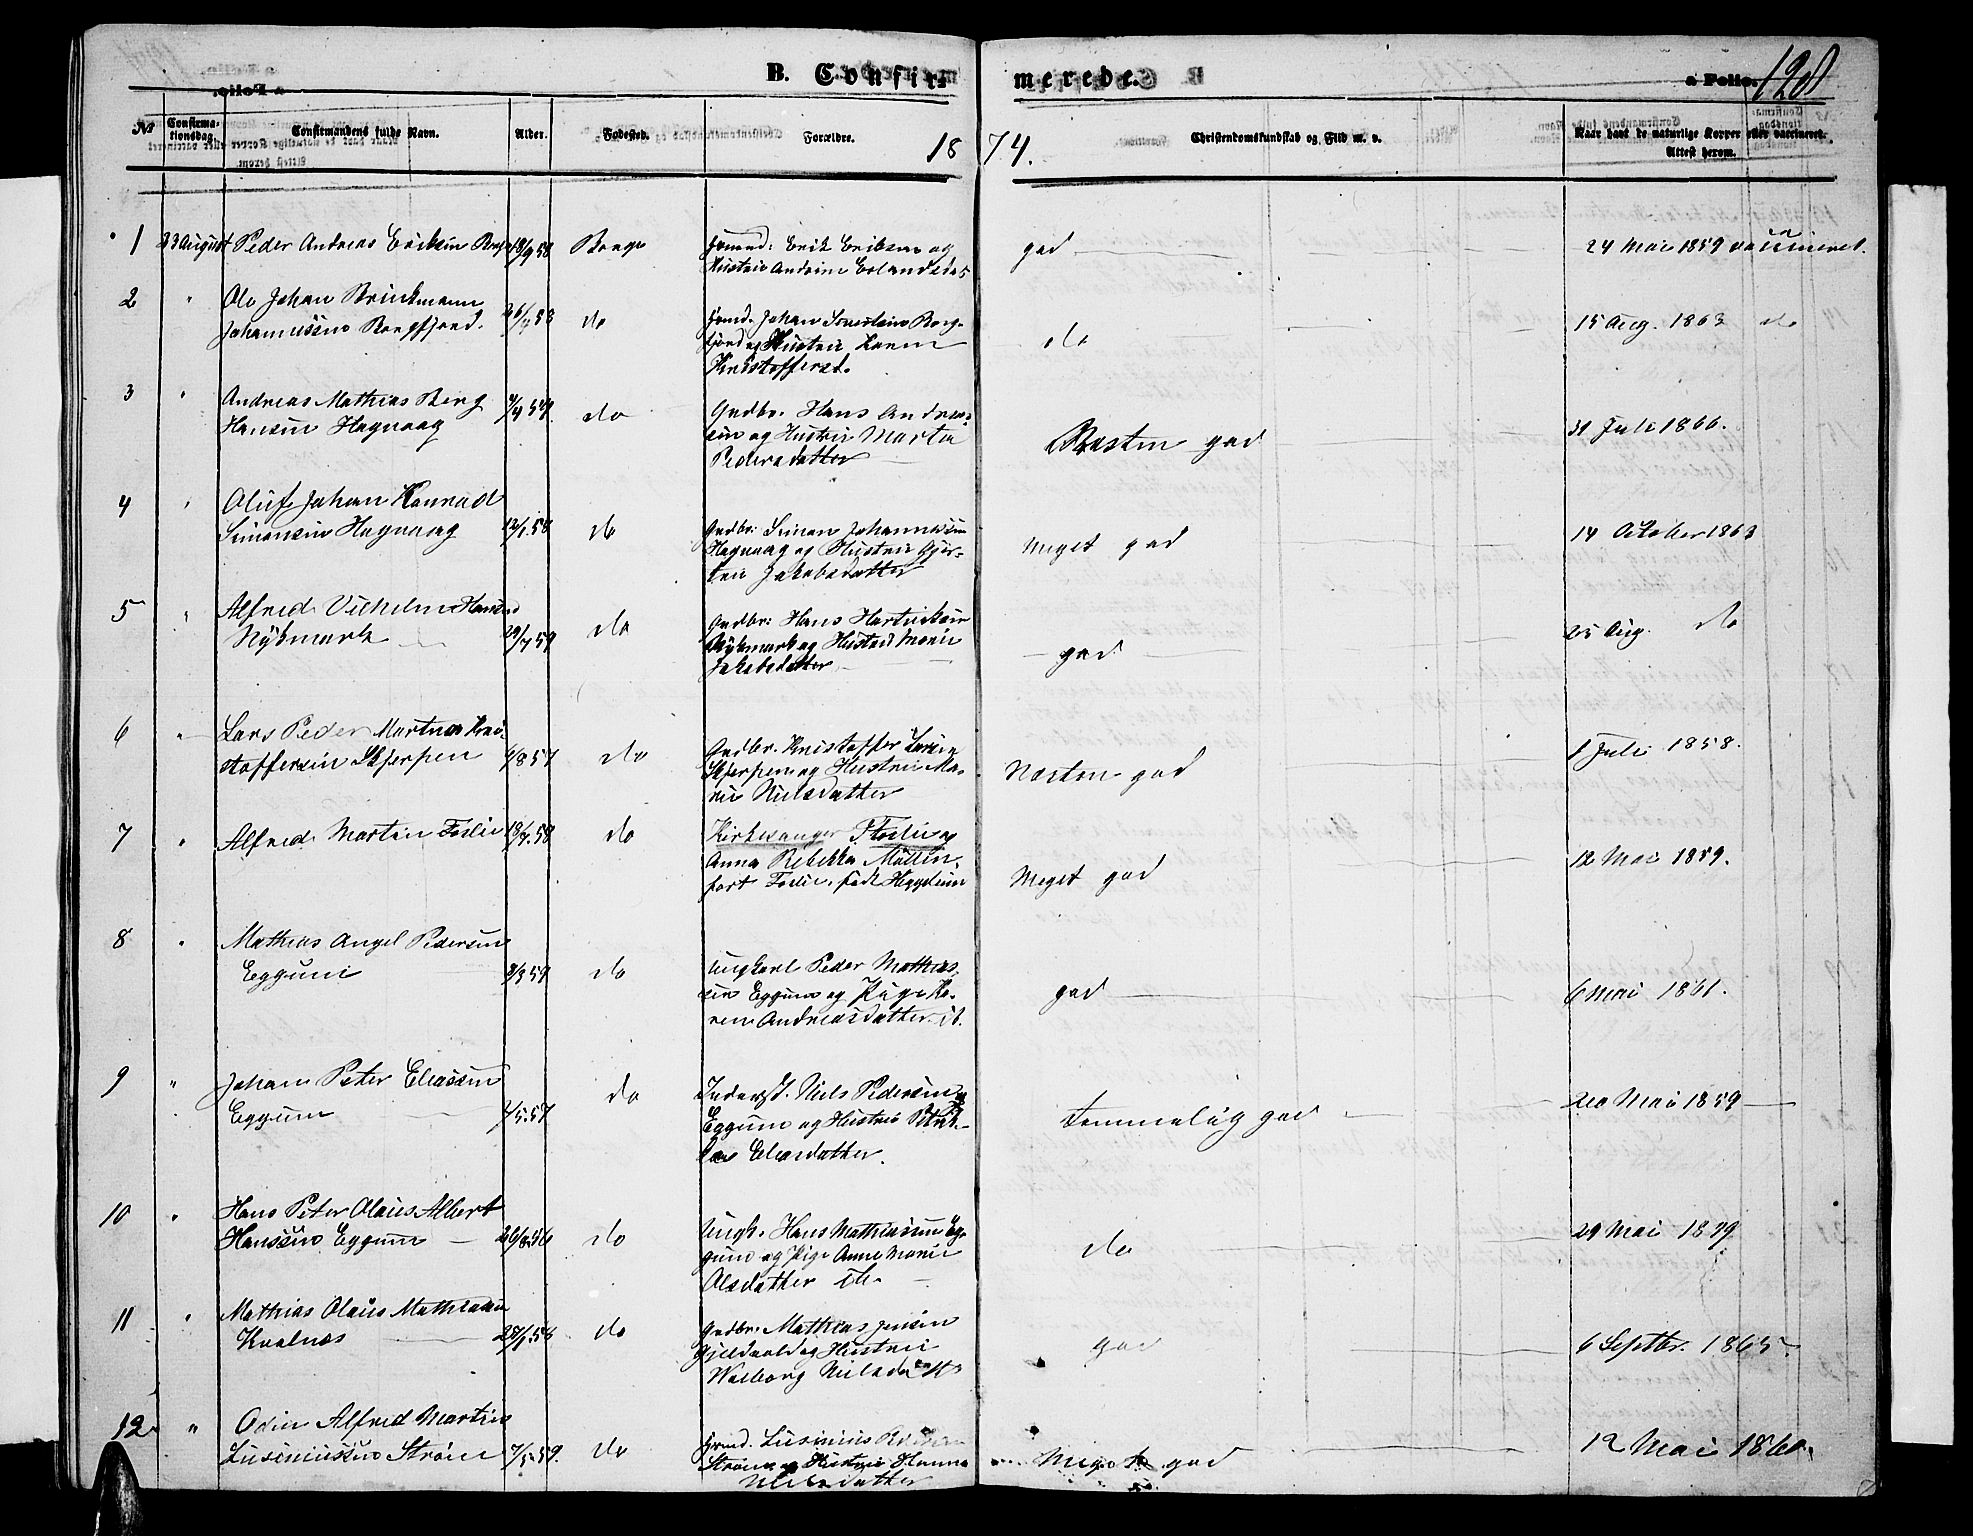 B. Confir-
merede.
a Folio. 128
No
Confirma-
tionsdag.
Confirmandens fulde Navn.
Alder.
Fødested.
Forældre.
Christendomskundskab og Flid m. v.
Naar havt de naturlige Kopper eller vaccineret.
Attest herom.
1874.
1 23 August Peder Andreas Eriksen Borge 18/9 58 Borge
Erik Eriksen og
Hustrue Andrine Erlandsdat
god
24 Mai 1859 vaccineret.
2 " Ole Johan Brinkmann
Johannessen Borgfjord.
do
Johan Severinsen Borg-
fjord og Hustrue Karen
Kristoffersd.
do
15 Aug. 1863 do
3 " Andreas Mathias Berg
Hansen Hagvaag
do
Gndbr. Hans Andrea-
sen og Hustrue Marta
Pedersdatter
Næsten god
31 Juli 1866.
4 " Oluf Johan Konrad
Simonsen Hagvaag
12/1.58
do
Gndbr. Simon Johannessen
Hagvaag og Hustrue
Jakobsdatter
Meget god
14 October 1863
5 " Alfred Vilhelm Hansen
Nykmark
29/7 59
do
Gndbr. Hans Hartviksen
Nykmark og Hustrue Maria
Jakobsdatter
god
25 Aug. do
6 " Lars Peder Martinus Kris-
stoffersen Skjerpen
do
Gndbr. Kristoffer Larsen
Skjerpen og Hustrue Ma-
rie Nielsdatter
Næsten god
1 Juli 1858.
7 " Alfred Martin Foslie
18/7.58
do
Kirkesanger Foslie og
Anna Rebekka
Foslie, født
Meget god
12 Mai 1859.
8 " Mathias Angel Pedersen
Eggum
do
Ungkarl Peder Mathias-
sen Eggum og Pige Ka-
ren Andreasdatter ib.
god
6 Mai 1861.
9 " Johan Peter Eliassen
Eggum
7/5.57
do
Inderst. Niels Pedersen
Eggum og Hustrue
Eliasdatter.
temmelig god
20 Mai 1859
10 " Hans Peter Olaus Albert
Hanssen Eggum
26/8.56
do
Ungk. Hans Mathiassen Eg-
gum og Pige Anne Marie
Olsdatter ib.
do
29 Mai 1859
11 " Mathias Olaus Mathiassen
Kvalnæs
do
Gndbr. Mathias Jensen
og Hustrue
Walborg Nielsdatter
god
6 Septbr. 1865.
12 " Odin Alfred Martin
Lusiniussen Strøm
7/5.59.
do
Lusinius
Strøm og Hustrue Hanna
Nilsdatter
Meget god
12 Mai 1860.